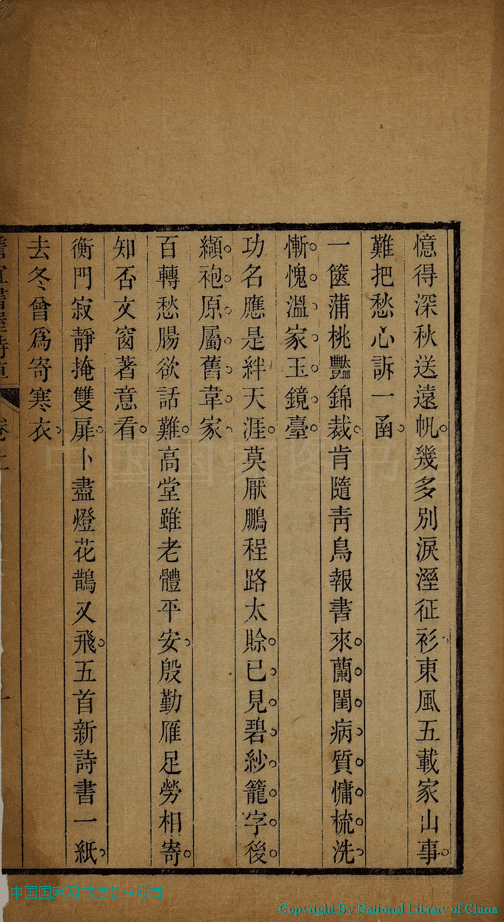 憶得深秋送遠帆幾多別淚溼征衫東風五載家山事
難把愁心訴一函
一篋蒲桃豔錦裁肯隨青鳥報書來蘭閨病質慵梳洗
慚愧溫家玉鏡臺
功名應是絆天涯莫厭鵬程路太賒已見碧紗籠字後
纈袍原屬舊韋家
百轉愁腸欲話難高堂雖老體平安殷勤雁足勞相寄
知否文窗著意看
衡門寂靜掩雙扉卜盡燈花鵲又飛五首新詩書一紙
去冬曾爲寄寒衣
Copyright By National Library of China